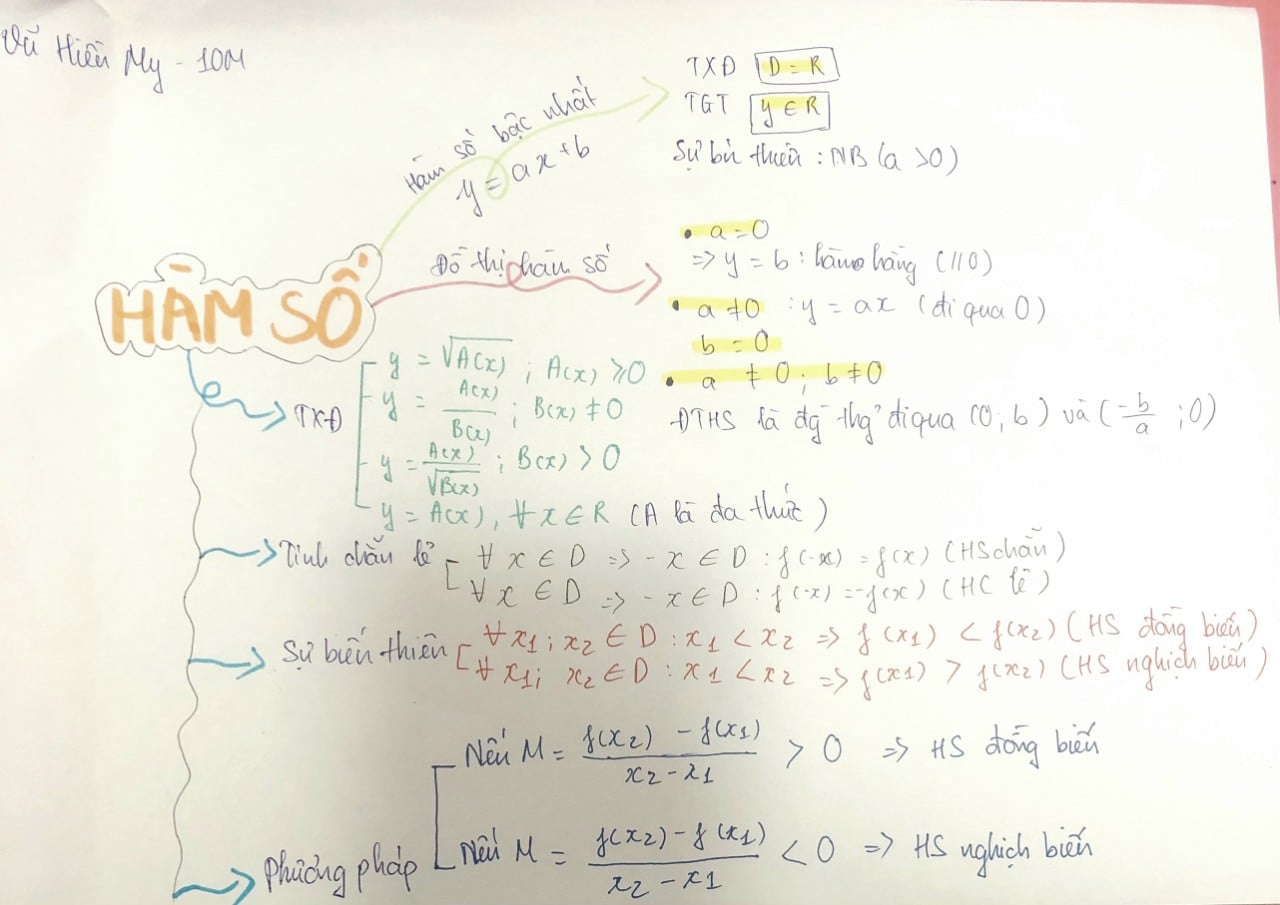 Vũ Hiền My - 10M
HÀM SỐ
Hàm số bậc nhất
y = ax + b
TXĐ D = R
TGT y ∈ R
Sự biến thiên : NB (a > 0)
Đồ thị hàm số
• a = 0
=> y = b : hàm hằng ( // 0)
• a ≠ 0 : y = ax (đi qua 0)
b = 0
• a ≠ 0 ; b ≠ 0
ĐTHS là đg thg đi qua (0 ; b) và (-b/a ; 0)
TXĐ
y = √A(x) ; A(x) ≥ 0
y = A(x)/B(x) ; B(x) ≠ 0
y = A(x)/√B(x) ; B(x) > 0
y = A(x), ∀ x ∈ R (A là đa thức)
Tính chẵn lẻ
∀ x ∈ D => - x ∈ D : f(-x) = f(x) (HS chẵn)
∀ x ∈ D => - x ∈ D : f(-x) = -f(x) (HC lẻ)
Sự biến thiên
∀ x1 ; x2 ∈ D : x1 < x2 => f(x1) < f(x2) (HS đồng biến)
∀ x1; x2 ∈ D : x1 < x2 => f(x1) > f(x2) (HS nghịch biến)
Phương pháp
Nếu M = f(x2) - f(x1)/x2 - x1 > 0 => HS đồng biến
Nếu M = f(x2) - f(x1)/x2 - x1 < 0 => HS nghịch biến